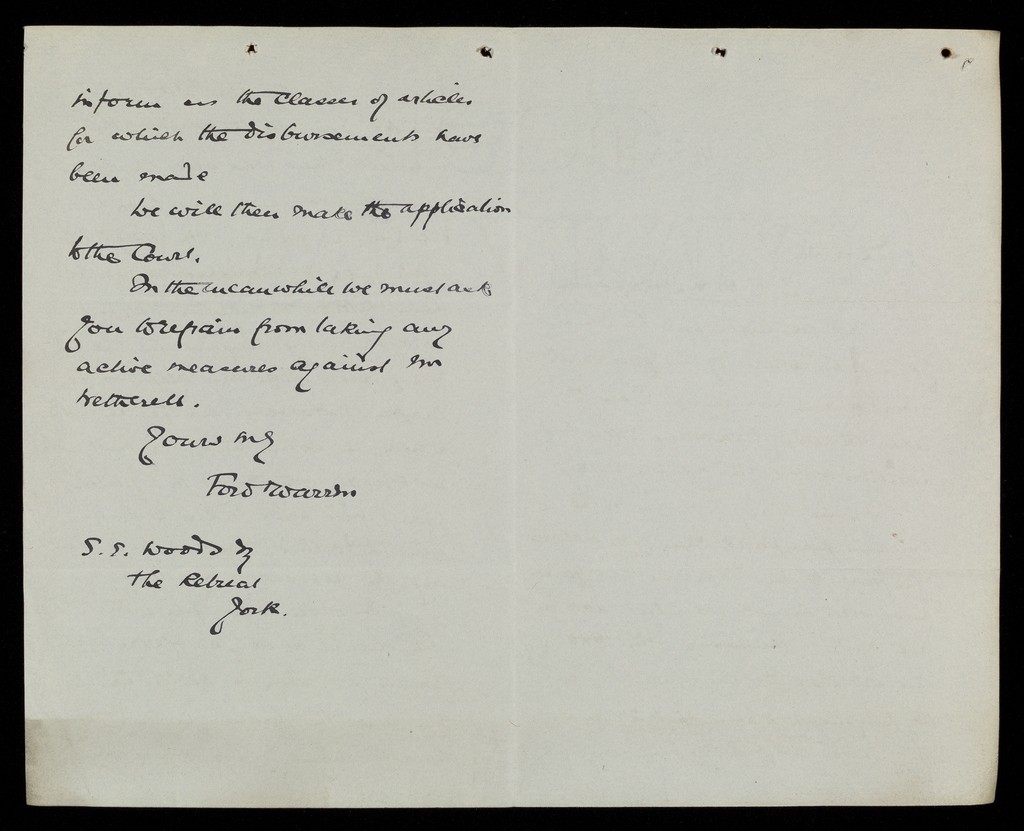 inform us the classes of articles
for which the disbursements have
been made
We will then make the application
to the Court.
In the meanwhile we must ask
you to refrain from taking any
active measures against Mr
Wetherell.
Yours truly
Ford & Warren
S. S. Woods Esq
The Retreat
York.